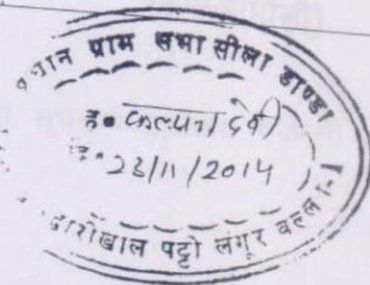 धान ग्राम सभा सीला डाण्डा
ह० कल्पना देवी
दि० 23/11/2014
द्वारीखाल पट्टी लंगूर वल्ला